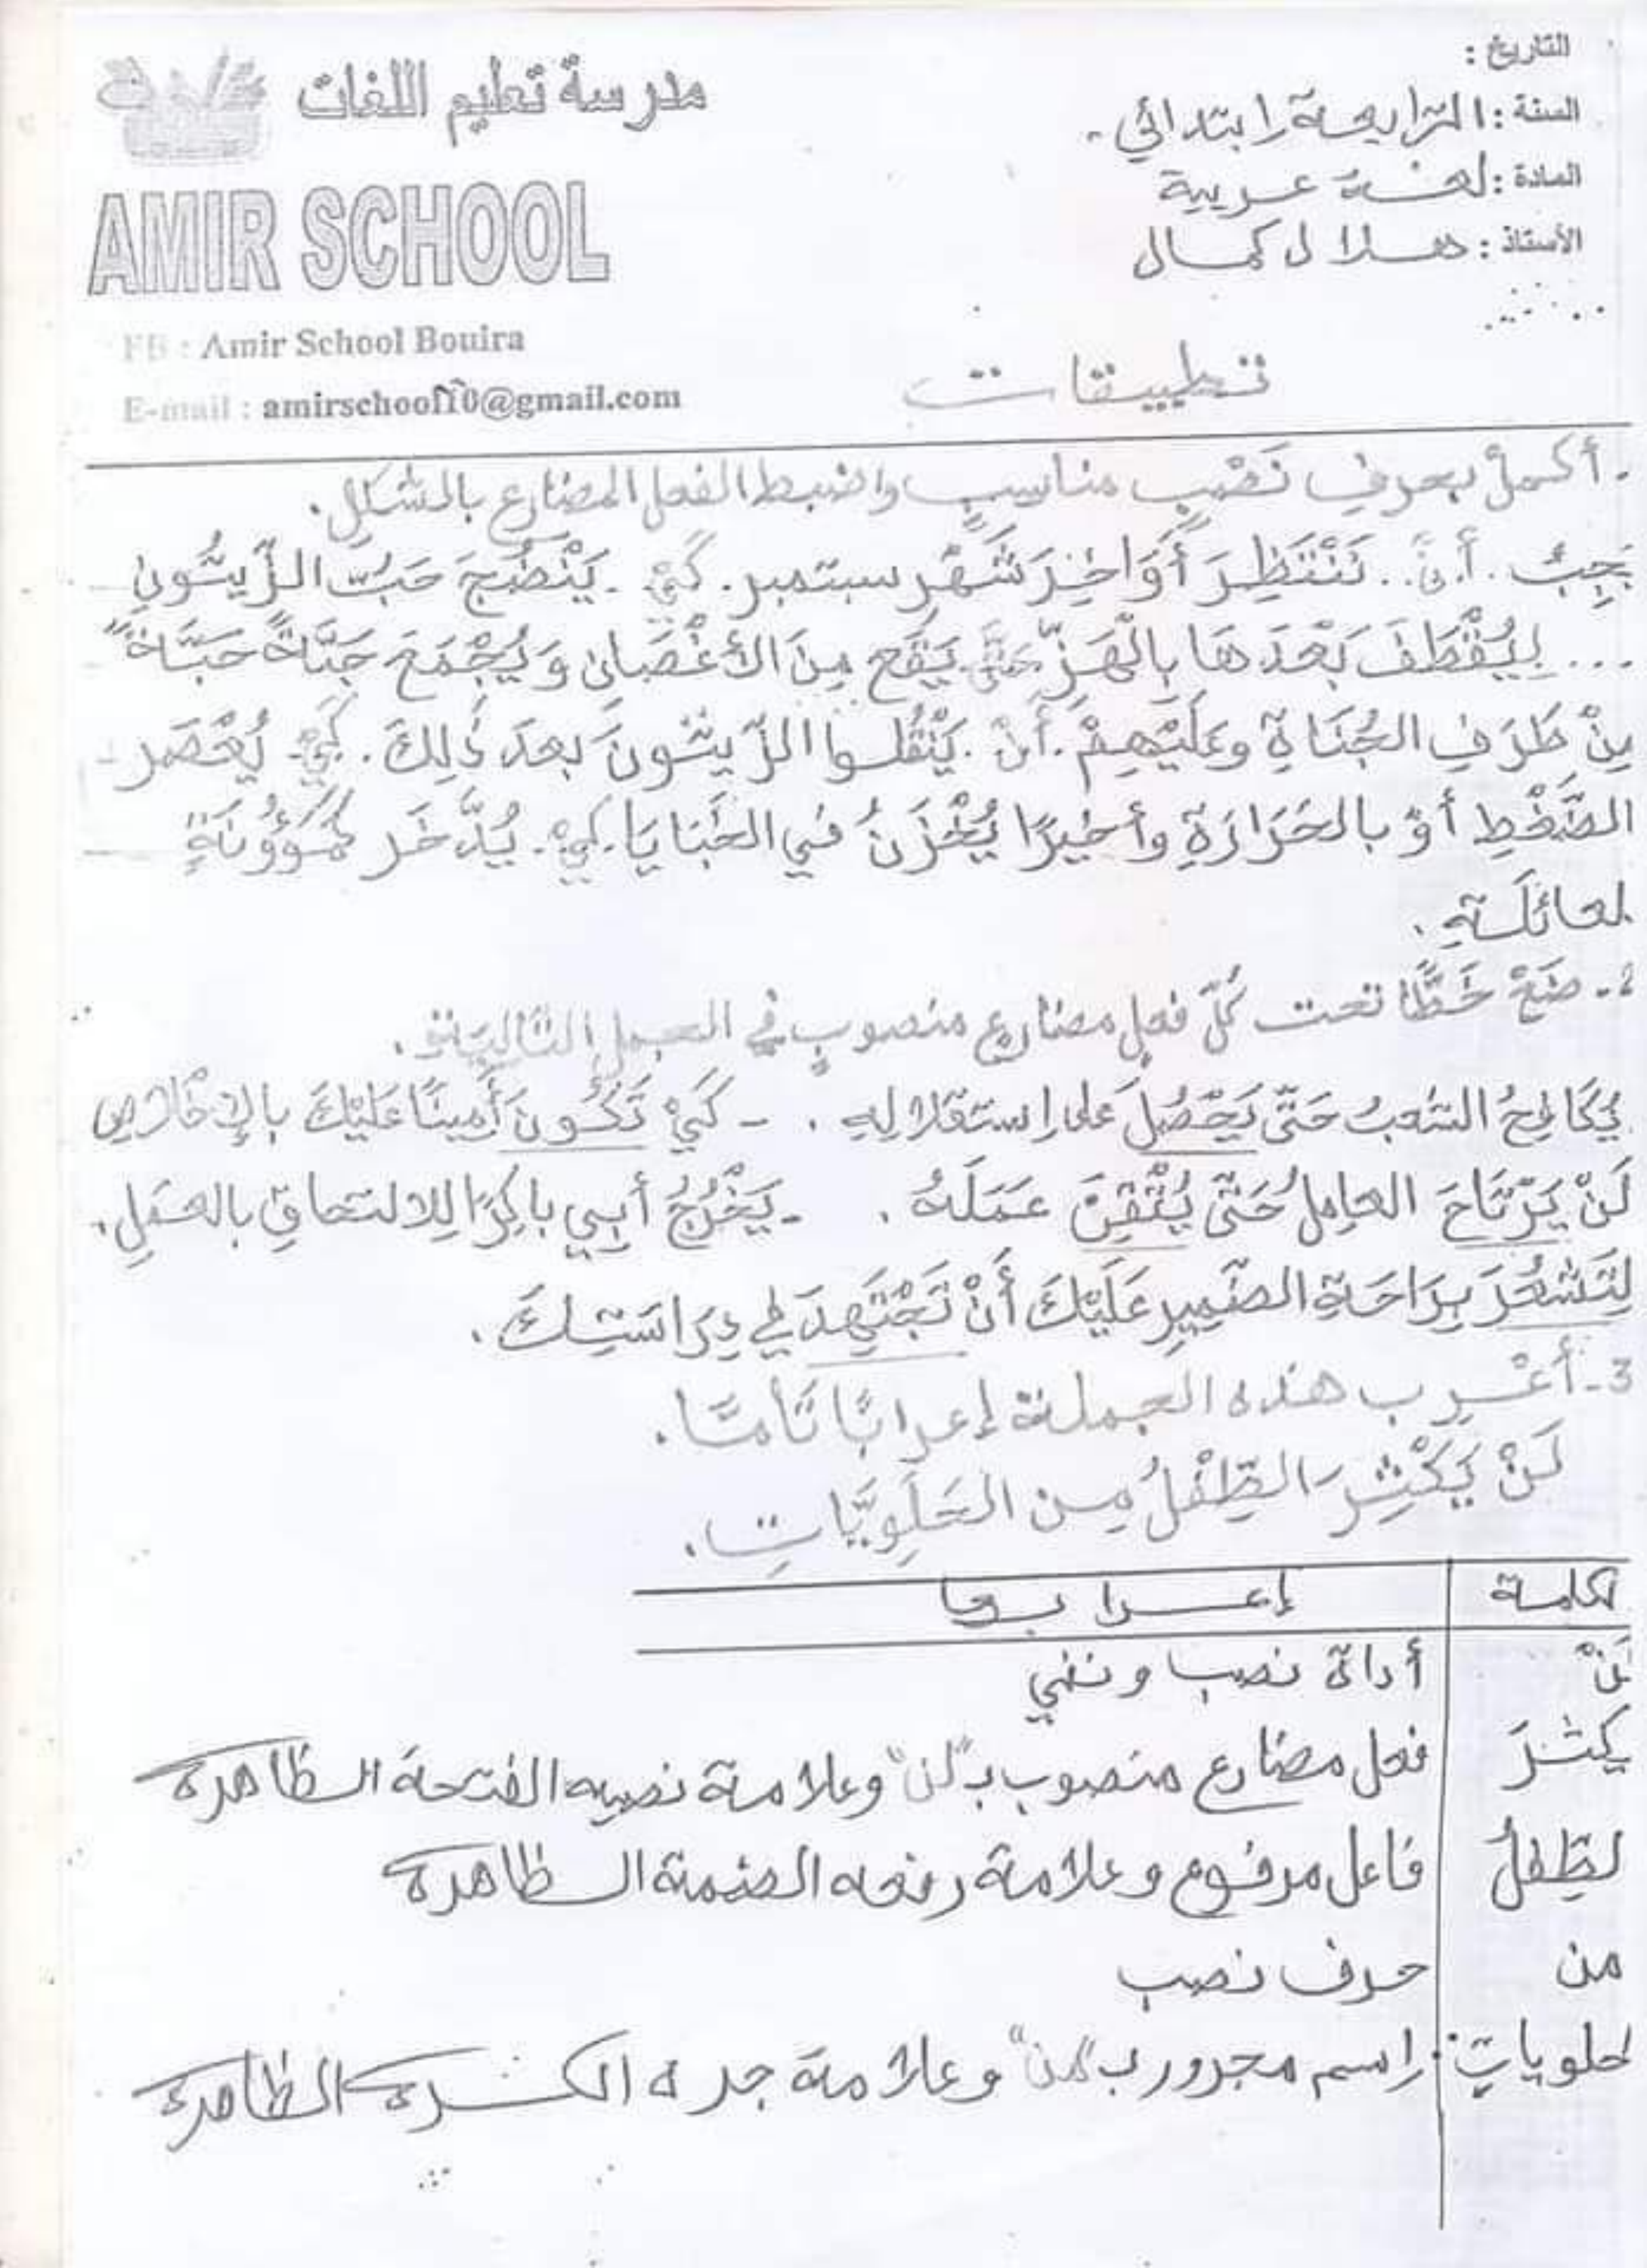 التاريخ :
السنة : الرابعة ابتدائي .
المادة : لغة عربية
الأستاذ : هلال كمال
مدرسة تعليم اللغات
AMIR SCHOOL
FB : Amir School Bouira
E-mail : amirschool10@gmail.com
تطبيقات
. أكملْ بحرفِ نَصْبٍ مناسبٍ واضبط الفعل المضارع بالشكلِ .
يَجِبُ .أنْ.. نَنْتَظِرَ أَوَاخِرَ شَهْرِ سبتمبر . كَيْ . يَنْضُجَ حَبُّ الزَّيتُونِ
... لِيُقْطَفَ بَعْدَهَا بِالْهَزِّ حَتَّى يَقَع مِنَ الأغْصَانِ وَيُجْمَعَ حَبَّةً حَبَّةً
مِنْ طَرَفِ الجُنَاةِ وعَلَيْهِمْ .أنْ . يَنْقُلوا الزَّيتُونَ بعدَ ذَلِكَ . كَيْ . يُعْصَر
الضَّغْطِ أوْ بالحَرَارَةِ وأخيرًا يُخْزَنُ في الخَبَايَا . كَيْ . يُدَّخَر كَمَؤُونَةٍ
لعائلَةِ .
2 - ضَعْ خَطًّا تحت كُلِّ فعلٍ مضارعٍ منصوبٍ في الجمل التَّاليَةِ .
يُكَافِحُ الشعبُ حَتَّى يَحْصُلَ على استقلالِهِ . - كَيْ تَكُونَ أَمِينًا عَلَيْكَ بالإخلاصِ
لَنْ يَرْتَاحَ العامِلُ حَتَّى يُتْقِنَ عَمَلَهُ . - يَخْرُجُ أبي باكِرًا لِلالتحاقِ بالحقلِ .
لِتَشْعُرَ بِرَاحَةِ الضَّمِيرِ عَلَيْكَ أَنْ تَجْتَهِدَ في دِرَاسَتِكَ .
3 - أعْرِب هذه الجملة إعرابًا تَامًّا .
لَنْ يَكْثِرَ الطِّفْلُ مِن الحَلَوِيَّاتِ .
لكلمة إعرابها
لَنْ أداة نصب ونفي
يكثرَ فعل مضارع منصوب بـ "لن" وعلامة نصبه الفتحة الظاهرة
لطِّفلُ فاعل مرفوع وعلامة رفعه الضمة الظاهرة
من حرف نصب
لحلوياتِ . اسم مجرور ب "من" وعلامة جره الكسرة الظاهرة